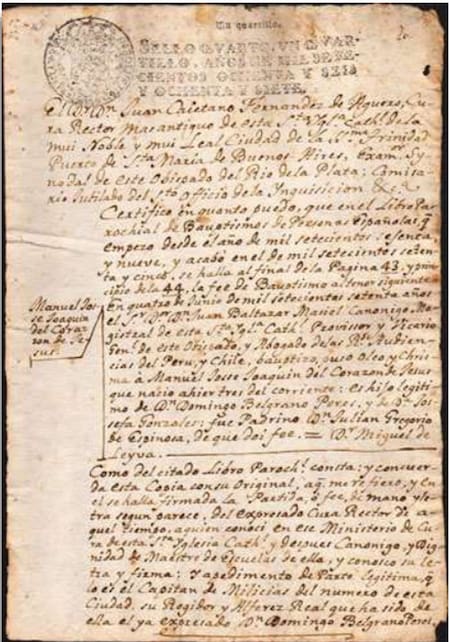 Un quartillo.
20.
SELLO QVARTO, VN QVAR-
TILLO, AÑOS DE MIL SETE-
CIENTOS OCHENTA Y SEIS
Y OCHENTA Y SIETE.
El Dr. Dn. Juan Caietano Fernandez de Aguero, Cu-
ra Rector Mas antiguo de esta Sta. Yglª. Cathl. de la
mui Noble y mui Leal Ciudad de la SSma. Trinidad
Puerto de Sta. Maria de Buenos Aires, Examr. Sy-
nodal de este Obispado del Rio de la Plata; Comisa-
rio Jutilado del Sto. Officio de la Ynquisicion &ª
Certifico en quanto puedo, que en el Libro Pa-
rochial de Bauptismos de Personas Españolas, q
empezo desde el año de mil setecientos sesenta
y nueve, y acabó en el de mil setecientos seten-
ta y cinco, se halla al final de la Pagina 43, y prin-
cipio de la 44, la fee de Bauptismo al tenor siguiente
Manuel Jos-
se Joaquin
del Corazon
de Je-
sus.
En quatro de Junio de mil setecientos setenta años
el Sr. Dor. Dn. Juan Baltazar Maciel Canonigo Ma-
gistral de esta Sta. Yglª. Cathl. Provissor y Vicario
Genl. de este Obispado, y Abogado de las Rs. Audien-
cias del Peru, y Chile, bauptizo, puso Oleo y Chris-
ma à Manuel Josse Joaquin del Corazon de Jesus
que nacio ahier tres del corriente: Es hijo legiti-
mo de Dn. Domingo Belgrano Peres, y de Dª. Jo-
sefa Gonzales: fue Padrino Dn. Julian Gregorio
de Espinosa, de que doi fee. = Dr. Miguel de
Leyva.
Como del citado Libro Parochl. consta: y concuer-
da esta Copia con su Original, aq. me refiero, y en
el se halla firmada la Partida, o fee, de mano y le-
tra segun parece, del expresado Cura Rector de a-
quel tiempo, aquien conoci en ese Ministerio de Cu-
ra de esta Sta. Yglesia Cathl. y despues Canonigo, y Dig-
nidad de Maestre de Escuelas de ella, y conosco su le-
tra y firma: Y apedimento de Parte legitima, q
lo es el Capitan de Milicias del numero de esta
Ciudad, su Regidor y Alferez Real que ha sido de
ella el ya expresado Dn. Domingo Belgrano Peres,